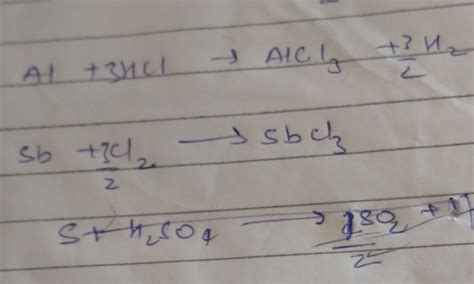 Al + 3HCl → AlCl₃ + 3/2 H₂
Sb + 3/2 Cl₂ → SbCl₃
S + H₂SO₄ → SO₂ +